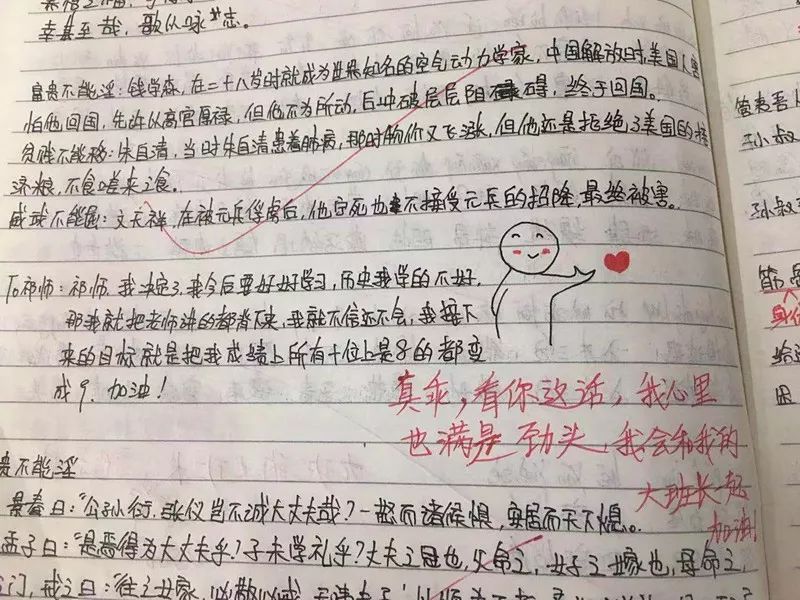 幸甚至哉,歌以咏志。
富贵不能淫:钱学森,在二十八岁时就成为世界知名的空气动力学家,中国解放时,美国人害
怕他回国,先许以高官厚禄,但他不为所动,后冲破层层阻碍,终于回国。
贫贱不能移:朱自清,当时朱自清患着肺病,那时物价又飞涨,但他还是拒绝了美国的接
济粮,不食嗟来之食。
威武不能屈:文天祥,在被元兵俘虏后,他宁死也不接受元兵的招降,最终被害。
To祁师:祁师,我决定了,我今后要好好学习,历史我学的不好,
那我就把老师讲的都背下来,我就不信还不会,我接下
来的目标就是把我成绩上所有十位上是8的都变
成9,加油!
真乖,看你这话,我心里
也满是劲头,我会和我的
大班长一起
加油!
贵不能淫
景春曰:"公孙衍、张仪岂不诚大丈夫哉?一怒而诸候惧,安居而天下熄。
孟子曰:"是焉得为大丈夫乎?子未学礼乎?丈夫之冠也,父命之,女子之嫁也,母命之,
门,戒之曰:"往之女家,必敬必戒,无违夫子!
管夷吾
孙叔
孙叔
给
困